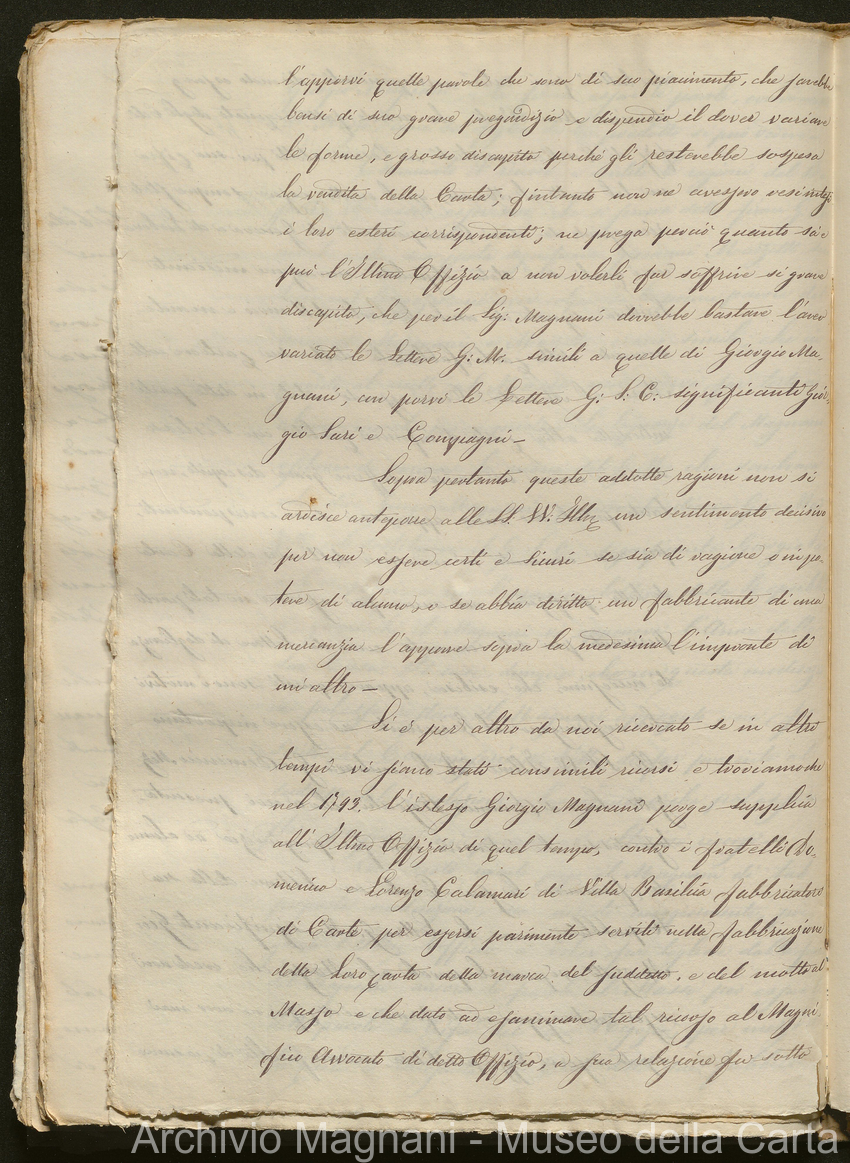 l'apporvi quelle parole che sono di suo piacimento, che sarebbe
bensì di suo grave pregiudizio e dispendio il dover variare
le forme, e grosso discapito perché gli resterebbe sospesa
la vendita della Carta; fintanto non ne avessero resi intesi
i loro esteri corrispondenti; ne prega perciò quanto sa e
può l'Illmo Offizio a non volerli far soffrire sì grave
discapito, che per il Sig: Magnani dovrebbe bastare l'aver
variato le Lettere G: M. simili a quelle di Giorgio Ma-
gnani, con porvi le Lettere G: S: C: significanti Gior-
gio Sari e Compagni –
Sopra pertanto queste addotte ragioni non si
ardisce anteporre alle LL. SS. Illme un sentimento decisivo
per non essere certi e sicuri se sia di ragione o in po-
tere di alcuno, o se abbia diritto un fabbricante di una
mercanzia l'apporre sopra la medesima l'impronte di
un altro –
Si è per altro da noi ricercato se in altri
tempi vi siano stati consimili ricorsi e troviamo che
nel 1793. l'istesso Giorgio Magnani porge supplica
all'Illmo Offizio di quel tempo, contro i fratelli Do-
menico e Lorenzo Calamari di Villa Basilica fabbricatori
di Carte per essersi parimente serviti nella fabbricazione
della Loro carta della marca del suddetto, e del motto al
Masso e che dato ad esaminare tal ricorso al Magni
fico Avvocato di detto Offizio, a sua relazione fu sotto
Archivio Magnani - Museo della Carta